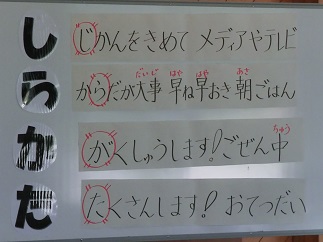 し じかんをきめて メディアやテレビ
ら からだが大事 早ね早おき朝ごはん
が がくしゅうします!ごぜん中
た たくさんします!おてつだい